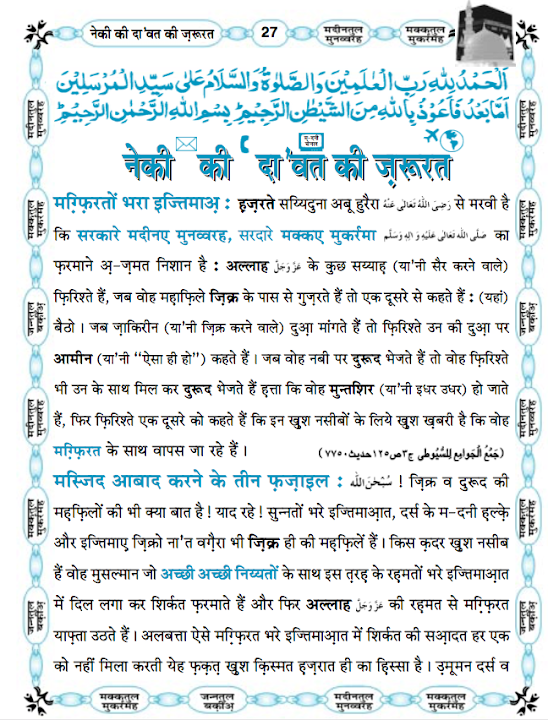 नेकी की दा'वत की ज़रूरत
27
मदीनतुल मुनव्वरह
मक्कतुल मुकर्रमह
اَلْحَمْدُ لِلّٰهِ رَبِّ الْعٰلَمِيْنَ وَالصَّلٰوةُ وَالسَّلَامُ عَلٰى سَيِّدِ الْمُرْسَلِيْنَ
اَمَّا بَعْدُ فَاَعُوْذُ بِاللّٰهِ مِنَ الشَّيْطٰنِ الرَّجِيْمِ ؕ بِسْمِ اللّٰهِ الرَّحْمٰنِ الرَّحِيْمِ ؕ
नेकी की दा'वत की ज़रूरत
मग़्फ़िरतों भरा इज्तिमाअ़ : हज़रते सय्यिदुना अबू हुरैरा رَضِىَ اللّٰهُ تَعَالٰى عَنْهُ से मरवी है
कि सरकारे मदीनए मुनव्वरह, सरदारे मक्कए मुकर्रमा صَلَّى اللّٰهُ تَعَالٰى عَلَيْهِ وَاٰلِهٖ وَسَلَّم का
फ़रमाने अ़-ज़मत निशान है : अल्लाह عَزَّوَجَلَّ के कुछ सय्याह़ (या'नी सैर करने वाले)
फ़िरिश्ते हैं, जब वोह मह़ाफ़िले ज़िक्र के पास से गुज़रते हैं तो एक दूसरे से कहते हैं : (यहां)
बैठो । जब ज़ाकिरीन (या'नी ज़िक्र करने वाले) दुआ़ मांगते हैं तो फ़िरिश्ते उन की दुआ़ पर
आमीन (या'नी “ऐसा ही हो”) कहते हैं । जब वोह नबी पर दुरूद भेजते हैं तो वोह फ़िरिश्ते
भी उन के साथ मिल कर दुरूद भेजते हैं ह़त्ता कि वोह मुन्तशिर (या'नी इधर उधर) हो जाते
हैं, फिर फ़िरिश्ते एक दूसरे को कहते हैं कि इन खुश नसीबों के लिये खुश ख़बरी है कि वोह
मग़्फ़िरत के साथ वापस जा रहे हैं । (جَمْعُ الْجَوامِع لِلسُّيُوطى ج٣ص١٢٥حديث٧٧٥٠)
मस्जिद आबाद करने के तीन फ़ज़ाइल : سُبْحٰنَ اللّٰه ! ज़िक्र व दुरूद की
मह़फ़िलों की भी क्या बात है ! याद रहे ! सुन्नतों भरे इज्तिमाआ़त, दर्स के म-दनी ह़ल्क़े
और इज्तिमाए़ ज़िक्रो ना'त वग़ैरा भी ज़िक्र ही की मह़फ़िलें हैं । किस क़दर खुश नसीब
हैं वोह मुसल्मान जो अच्छी अच्छी निय्यतों के साथ इस त़रह़ के रह़मतों भरे इज्तिमाआ़त
में दिल लगा कर शिर्कत फ़रमाते हैं और फिर अल्लाह عَزَّوَجَلَّ की रह़मत से मग़्फ़िरत
याफ़्ता उठते हैं । अलबत्ता ऐसे मग़्फ़िरत भरे इज्तिमाआ़त में शिर्कत की सआ़दत हर एक
को नहीं मिला करती येह फ़क़त़ खुश क़िस्मत ह़ज़रात ही का ह़िस्सा है । उ़मूमन दर्स व
मक्कतुल मुकर्रमह
जन्नतुल बक़ीअ़
मदीनतुल मुनव्वरह
मक्कतुल मुकर्रमह